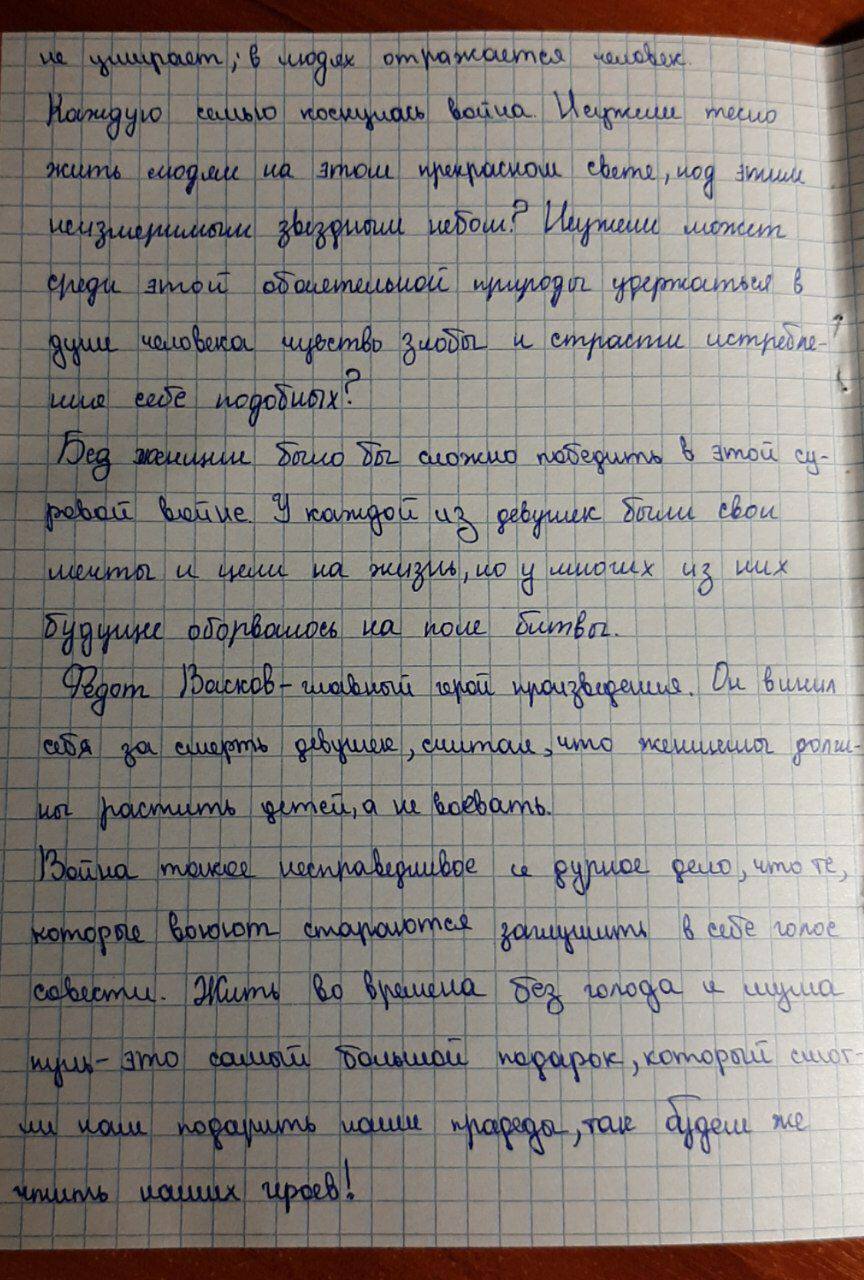 не умирает; в людях отражается человек.
Каждую семью коснулась война. Неужели тесно
жить людям на этом прекрасном свете, под этим
неизмеримым звездным небом? Неужели может
среди этой обаятельной природы удержаться в
душе человека чувство злобы и страсти истребле-
ния себе подобных?
Без женщин было бы сложно победить в этой су-
ровой войне. У каждой из девушек были свои
мечты и цели на жизнь, но у многих из них
будущие оборвалось на поле битвы.
Федот Васков - главный герой произведения. Он винил
себя за смерть девушек, считал, что женщины долж-
ны растить детей, а не воевать.
Война такое несправедливое и дурное дело, что те,
которые воюют стараются заглушить в себе голос
совести. Жить во времена без голода и шума
пуль - это самый большой подарок, который смог-
ли нам подарить наши прадеды, так будем же
чтить наших героев!